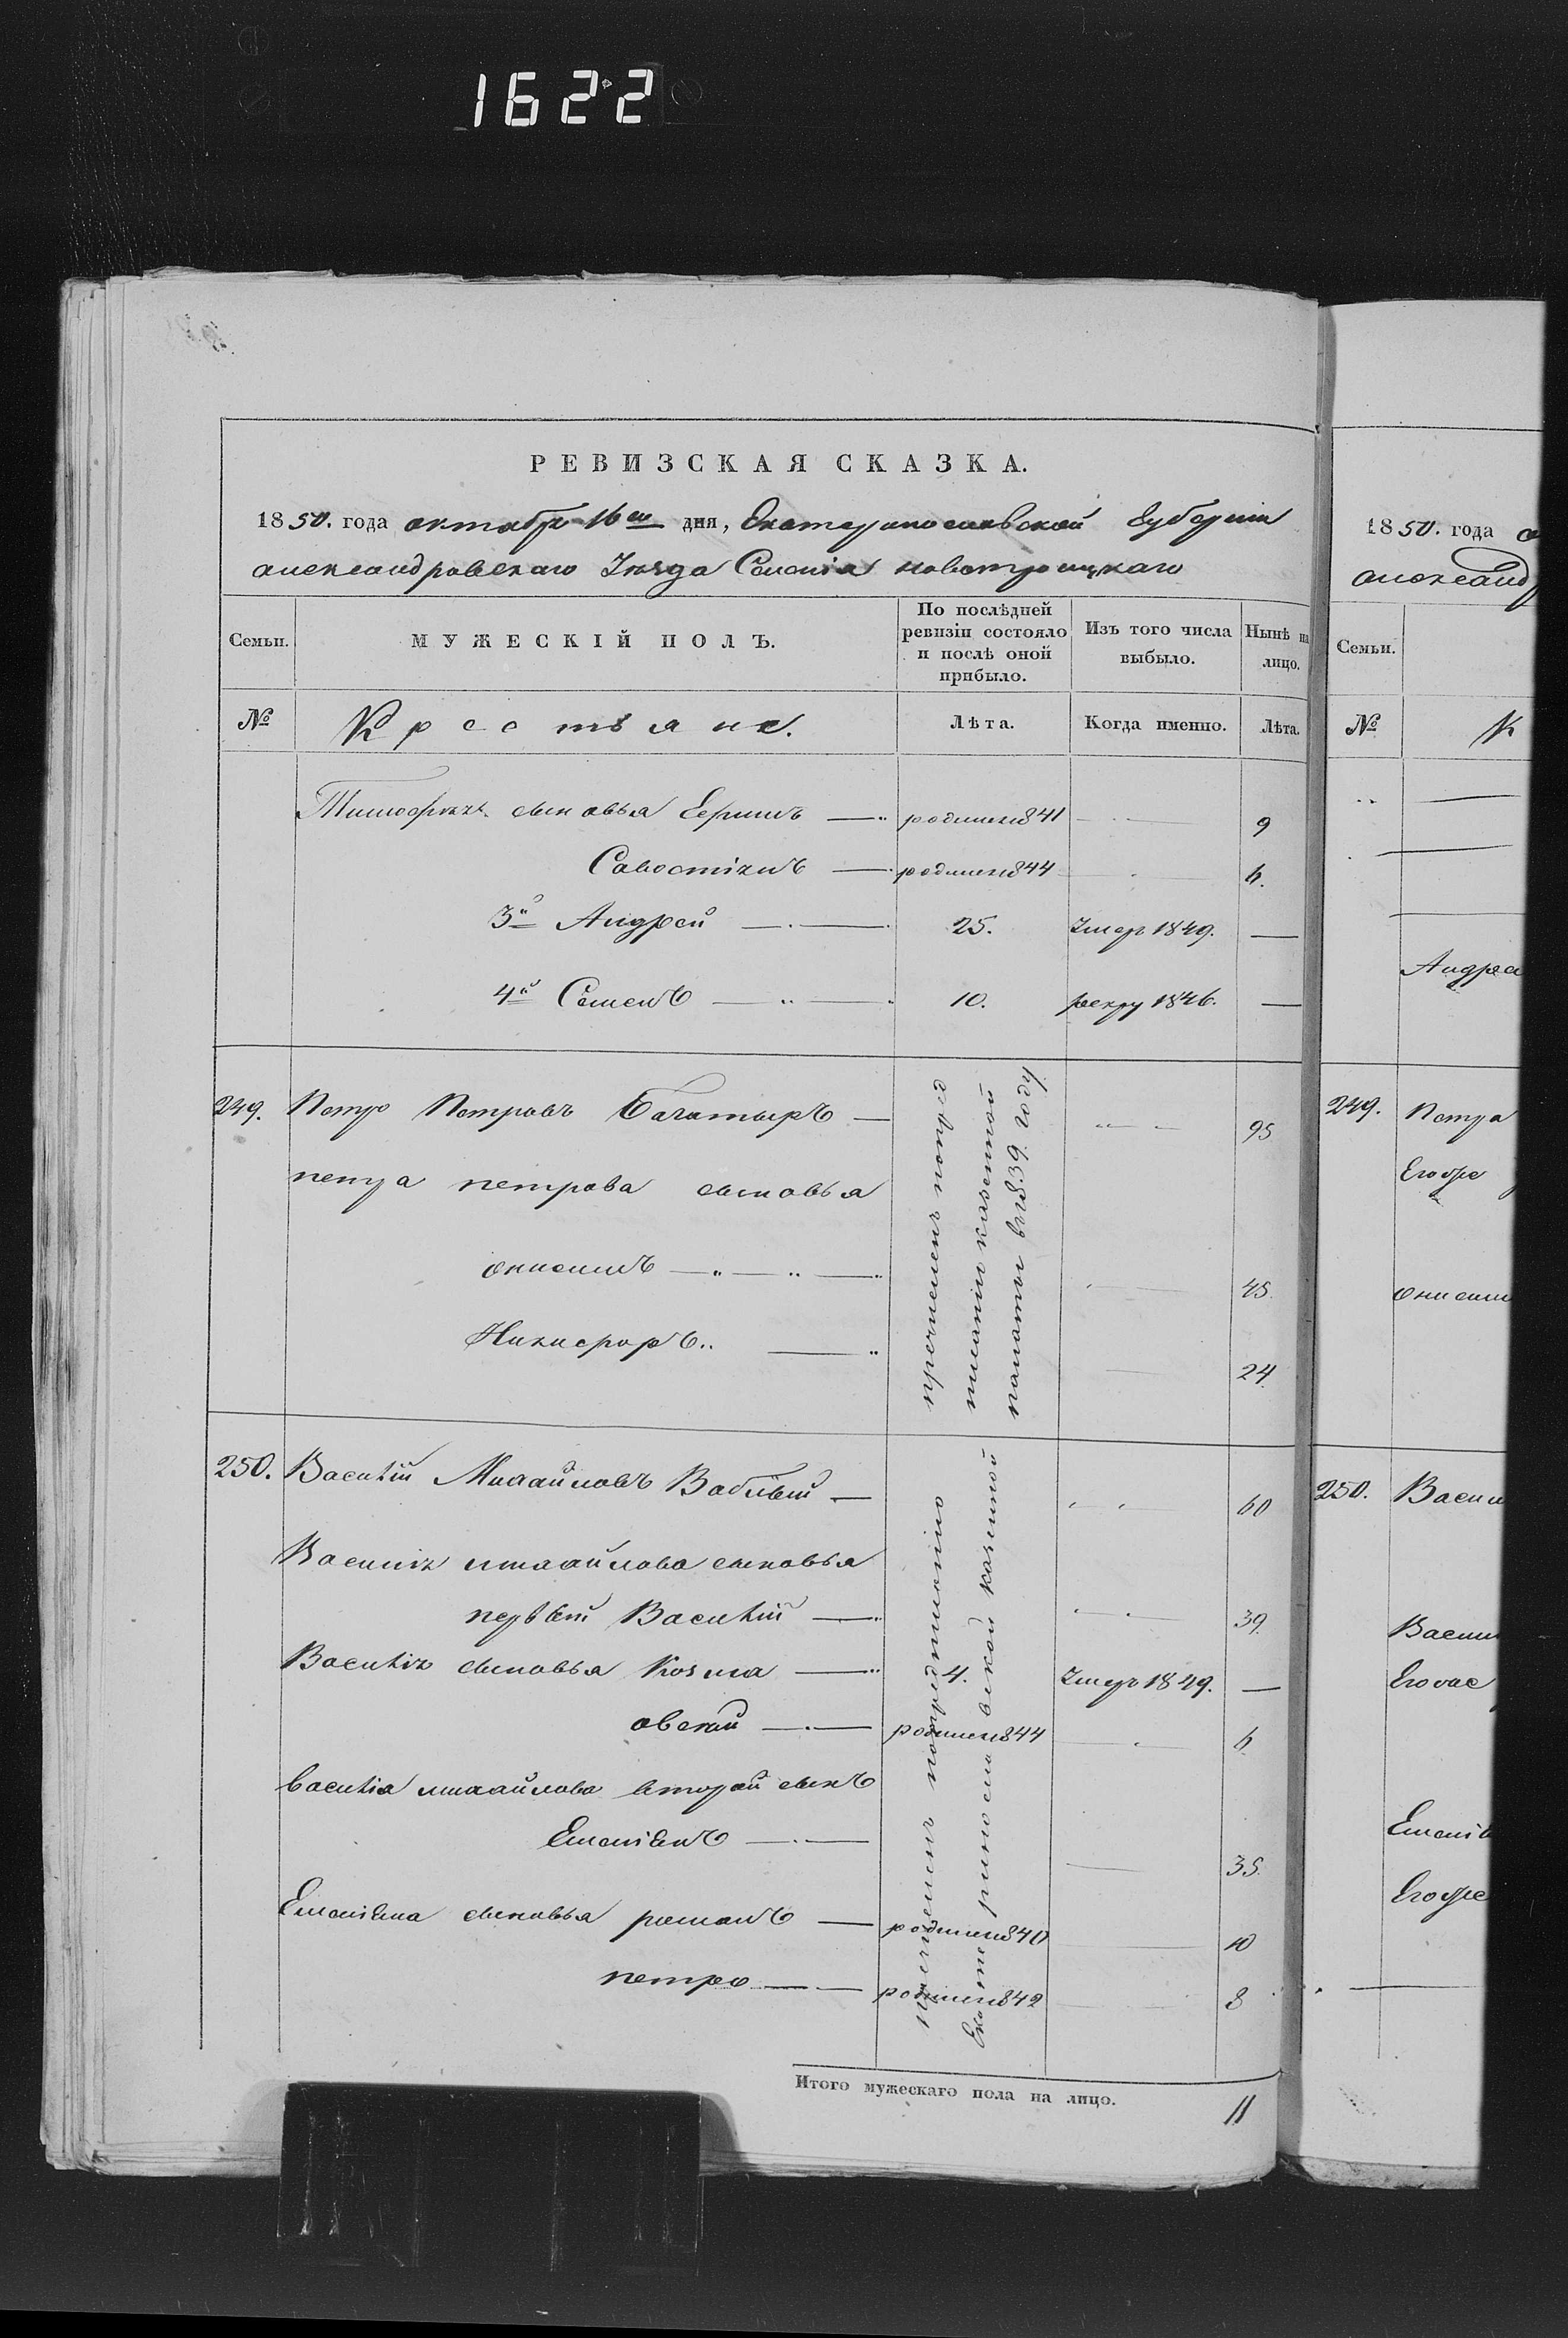 1622
РЕВИЗСКАЯ СКАЗКА.
1850. года октября 16го дня, Екатеринославской Губерніи
александровскаго Уѣзда Селенія новотроицкаго
Семьи.
МУЖЕСКІЙ ПОЛЪ.
По послѣдней ревизіи состояло и послѣ оной прибыло.
Изъ того числа выбыло.
Нынѣ на лицо.
№
Крестьяне.
Лѣта.
Когда именно.
Лѣта.
Тимофѣя сыновья Ефимъ родился 841 9
Савостіянъ родился 844 6.
3й Андрей 25. Умеръ 1849. —
4й Семенъ 10. рекру 1846. —
249. Петро Петровъ Багатыръ — 95
петра петрова сыновья
онисимъ 45.
Никифоръ.. 24.
причисленъ попред
писанію казенной
палаты в 1839. году
250. Василій Михайловъ Вабливый — 60
Василія михайлова сыновья
первый Василій 39.
Василія сыновья Козма 4. Умеръ 1849. —
овскій родился 844 6
василія михайлова второй сынъ
Емеліянъ 35.
Емеліяна сыновья романъ родился 840 10
петро родился 842 8
причисленъ попредписанію
Екатеринославской казенной
Итого мужескаго пола на лицо. 11
1850. года
александр
Семьи.
№
К
Андрея
249. Петра
Егоже
онисим
250. Васил
Васил
Еговас
Емелія
Егоже